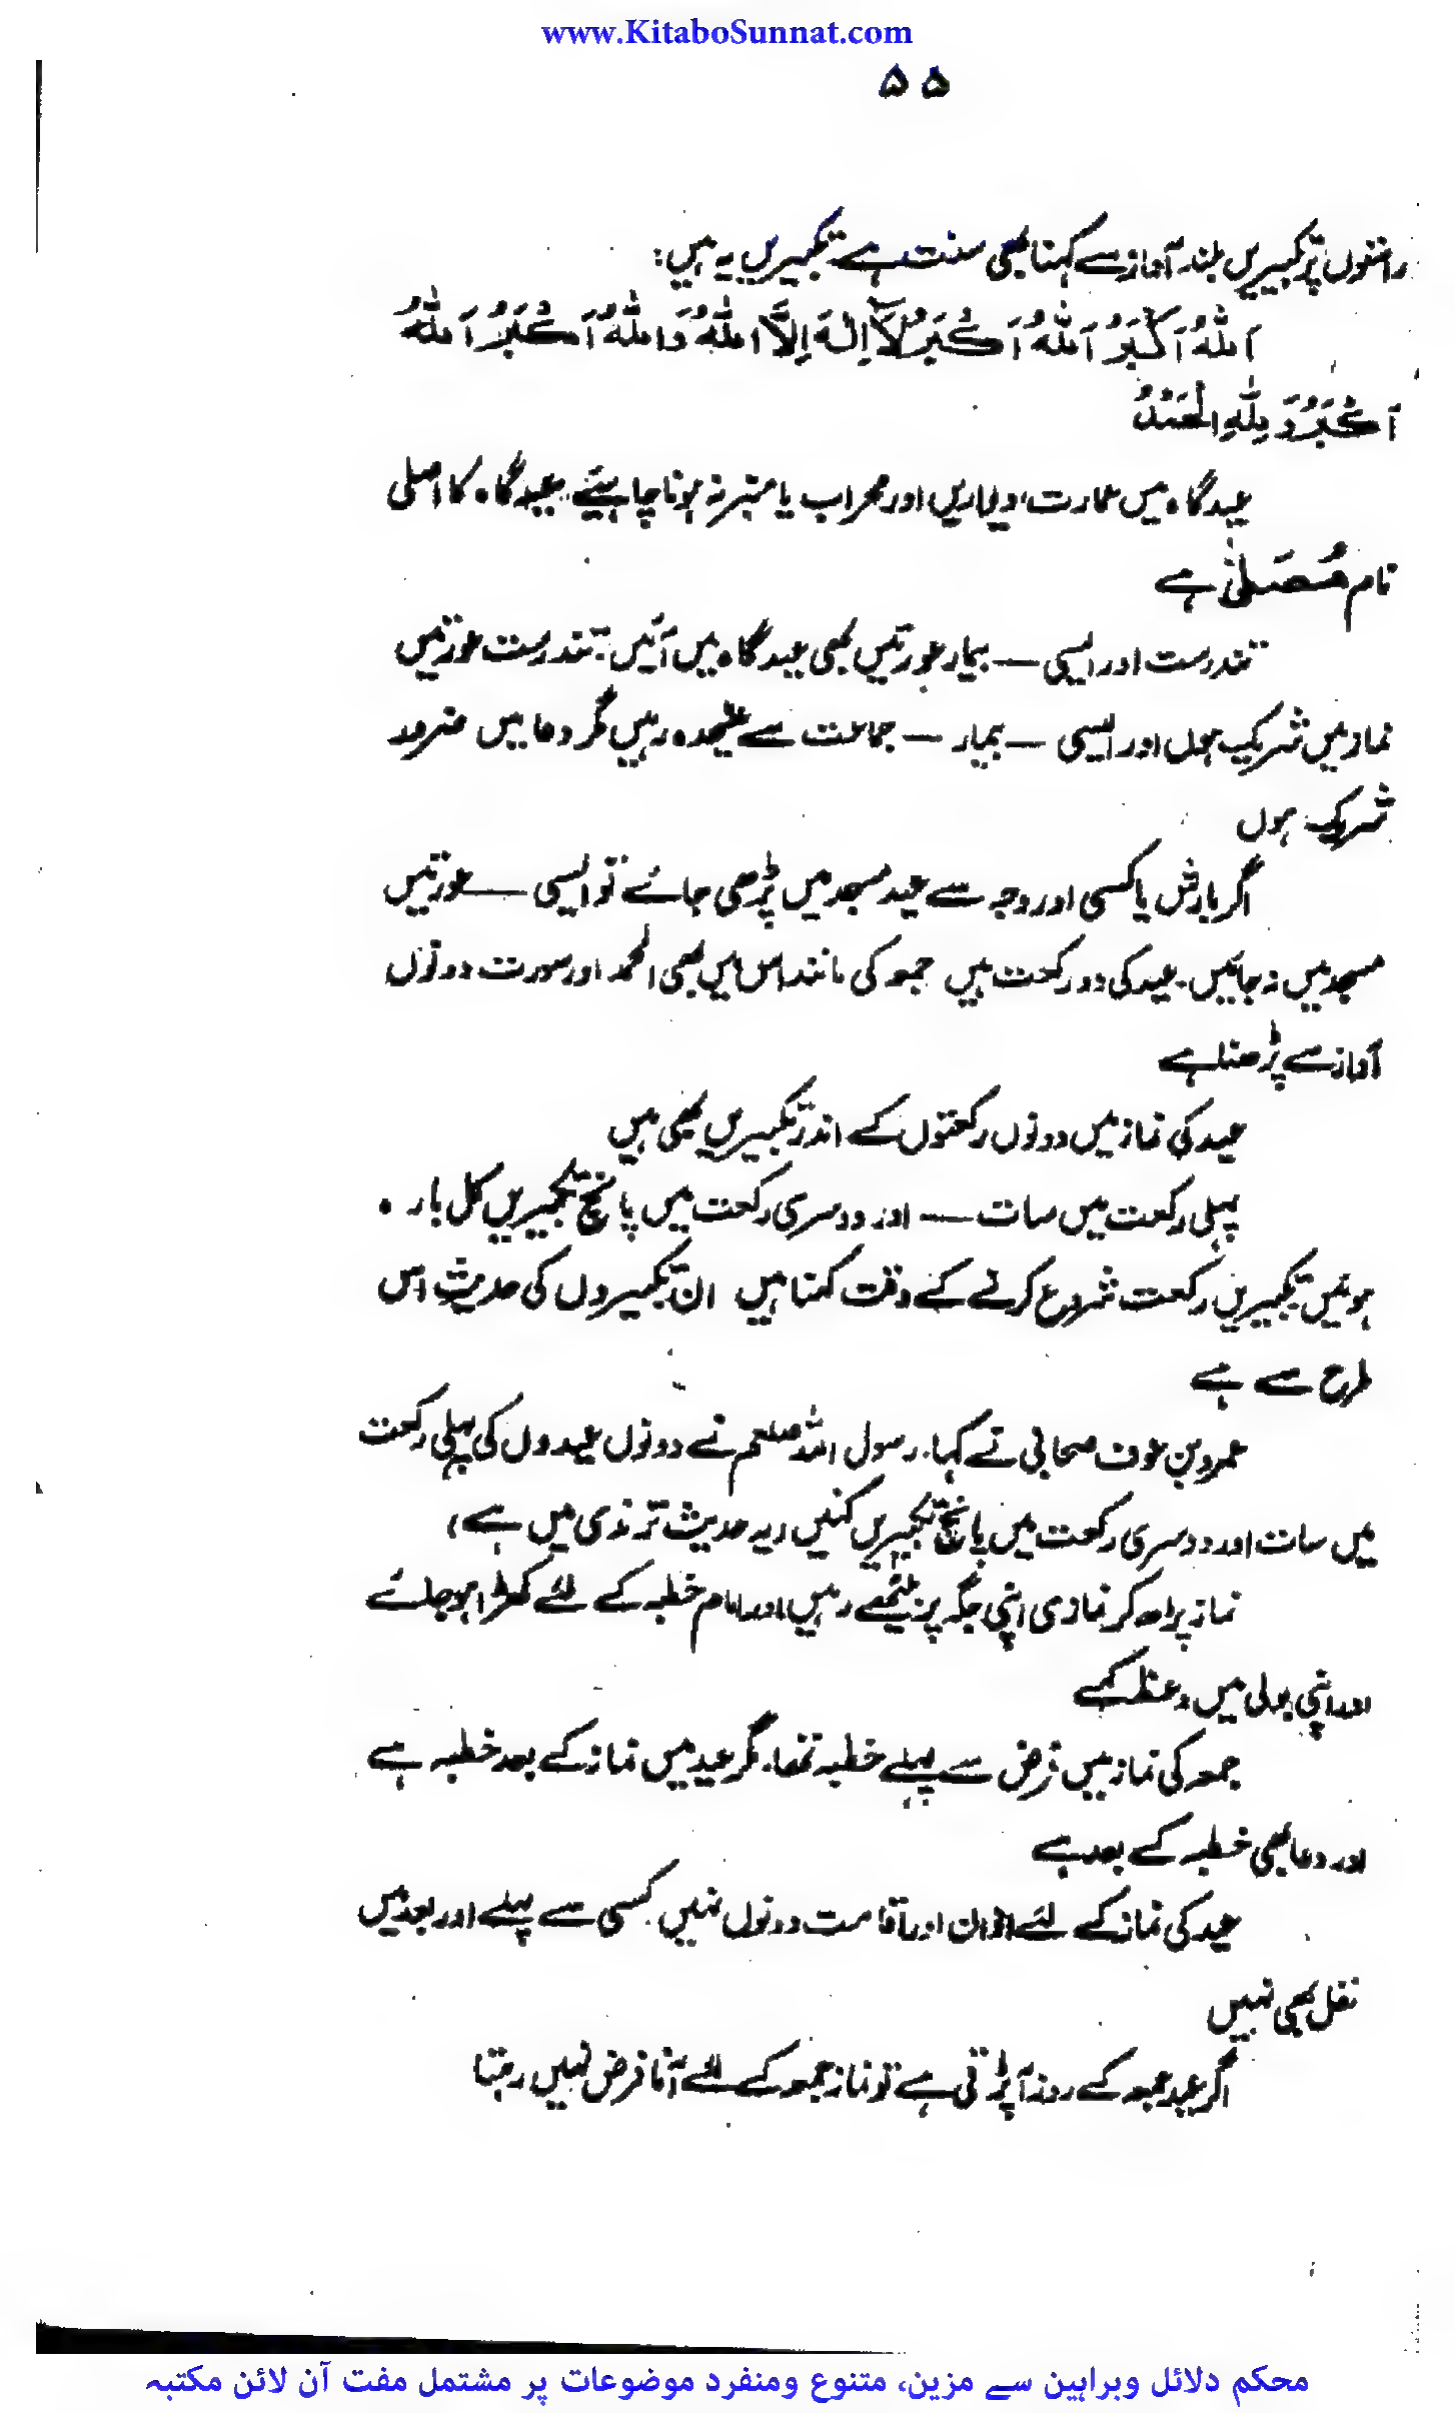 www.KitaboSunnat.com
۵۵
راستوں پر تکبیریں بلند آواز سے کہنا بھی سنت ہے تکبیریں یہ ہیں:
اَللّٰهُ اَكْبَرُ اَللّٰهُ اَكْبَرُ لَآ اِلٰهَ اِلَّا اللّٰهُ وَاللّٰهُ اَكْبَرُ اَللّٰهُ
اَكْبَرُ وَ لِلّٰهِ الْحَمْدُ
عیدگاہ میں عمارت، دیواریں اور محراب یا منبر نہ ہونا چاہیئے، عیدگاہ کا اصلی
نام مُصَلّٰی ہے
تندرست اور ایسی — بیمار عورتیں بھی عیدگاہ میں آئیں۔ تندرست عورتیں
نماز میں شریک ہوں اور ایسی — بیمار — جماعت سے علیٰحدہ رہیں مگر دعا میں ضرور
شریک ہوں
اگر بارش یا کسی اور وجہ سے عید مسجد میں پڑھی جائے تو ایسی — عورتیں
مسجد میں نہ جائیں۔ عید کی دو رکعت ہیں جمعہ کی مانند اس میں بھی الحمد اور سورت دونوں
آواز سے پڑھنا ہے
عید کی نماز میں دونوں رکعتوں کے اندر تکبیریں بھی ہیں
پہلی رکعت میں سات — اور دوسری رکعت میں پانچ تکبیریں کل بارہ
ہوئیں تکبیریں رکعت شروع کرنے کے وقت کہنا ہیں ان تکبیروں کی حدیث اس
طرح سے ہے
عمرو بن عوف صحابی نے کہا۔ رسول اللہ صلعم نے دونوں عیدوں کی پہلی رکعت
میں سات اور دوسری رکعت میں پانچ تکبیریں کہیں (یہ حدیث ترمذی میں ہے)
نماز پڑھ کر نمازی اپنی جگہ پر بیٹھے رہیں اور امام خطبہ کے لئے کھڑا ہو جائے
اور اپنی بولی میں وعظ کہے
جمعہ کی نماز میں فرض سے پہلے خطبہ تھا۔ مگر عید میں نماز کے بعد خطبہ ہے
اور دعا بھی خطبہ کے بعد ہے
عید کی نماز کے لئے اذان اور اقامت دونوں نہیں۔ کسی سے پہلے اور بعد میں
نفل بھی نہیں
اگر عید جمعہ کے روز آ پڑتی ہے تو نماز جمعہ کے لئے آنا فرض نہیں رہتا
محکم دلائل وبراہین سے مزین، متنوع ومنفرد موضوعات پر مشتمل مفت آن لائن مکتبہ